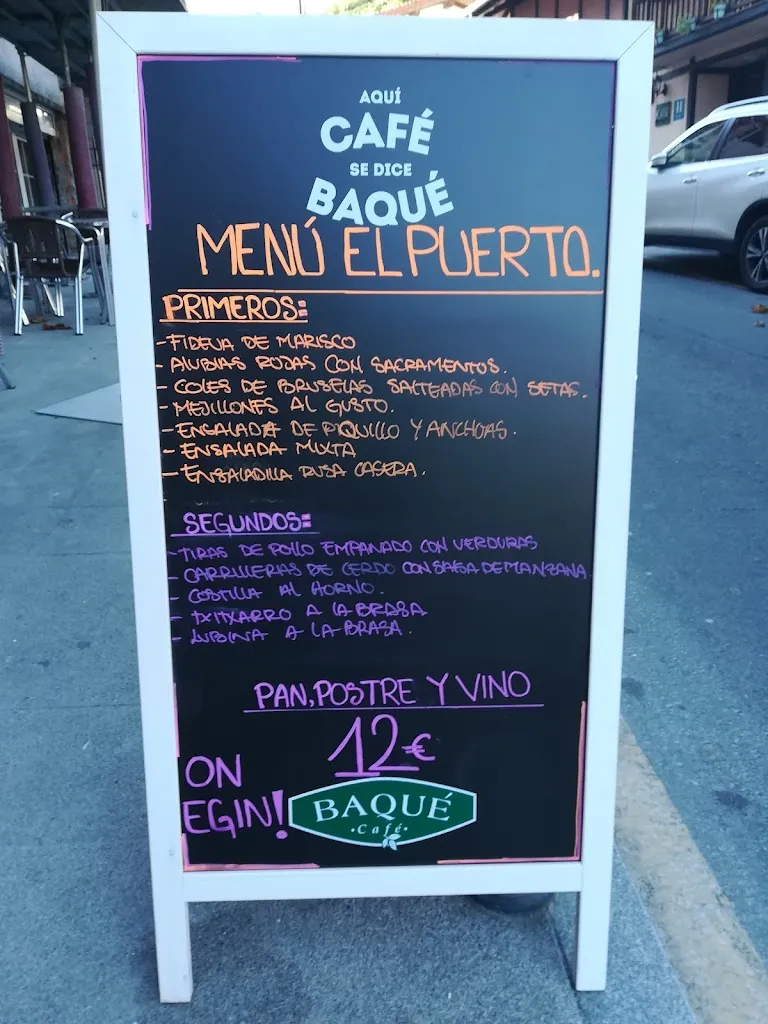 AQUÍ
CAFÉ
SE DICE
BAQUÉ
MENÚ EL PUERTO.
PRIMEROS:
-FIDEUA DE MARISCO
-ALUBIAS ROJAS CON SACRAMENTOS.
-COLES DE BRUSELAS SALTEADAS CON SETAS.
-MEJILLONES AL GUSTO.
-ENSALADA DE PIQUILLO Y ANCHOAS.
-ENSALADA MIXTA
-ENSALADILLA RUSA CASERA.
SEGUNDOS:
-TIRAS DE POLLO EMPANADO CON VERDURAS
-CARRILLERAS DE CERDO CON SALSA DE MANZANA
-COSTILLA AL HORNO.
-TXITXARRO A LA BRASA
-LUBINA A LA BRASA.
PAN, POSTRE Y VINO
12€
ON
EGIN!
BAQUÉ
·Café·